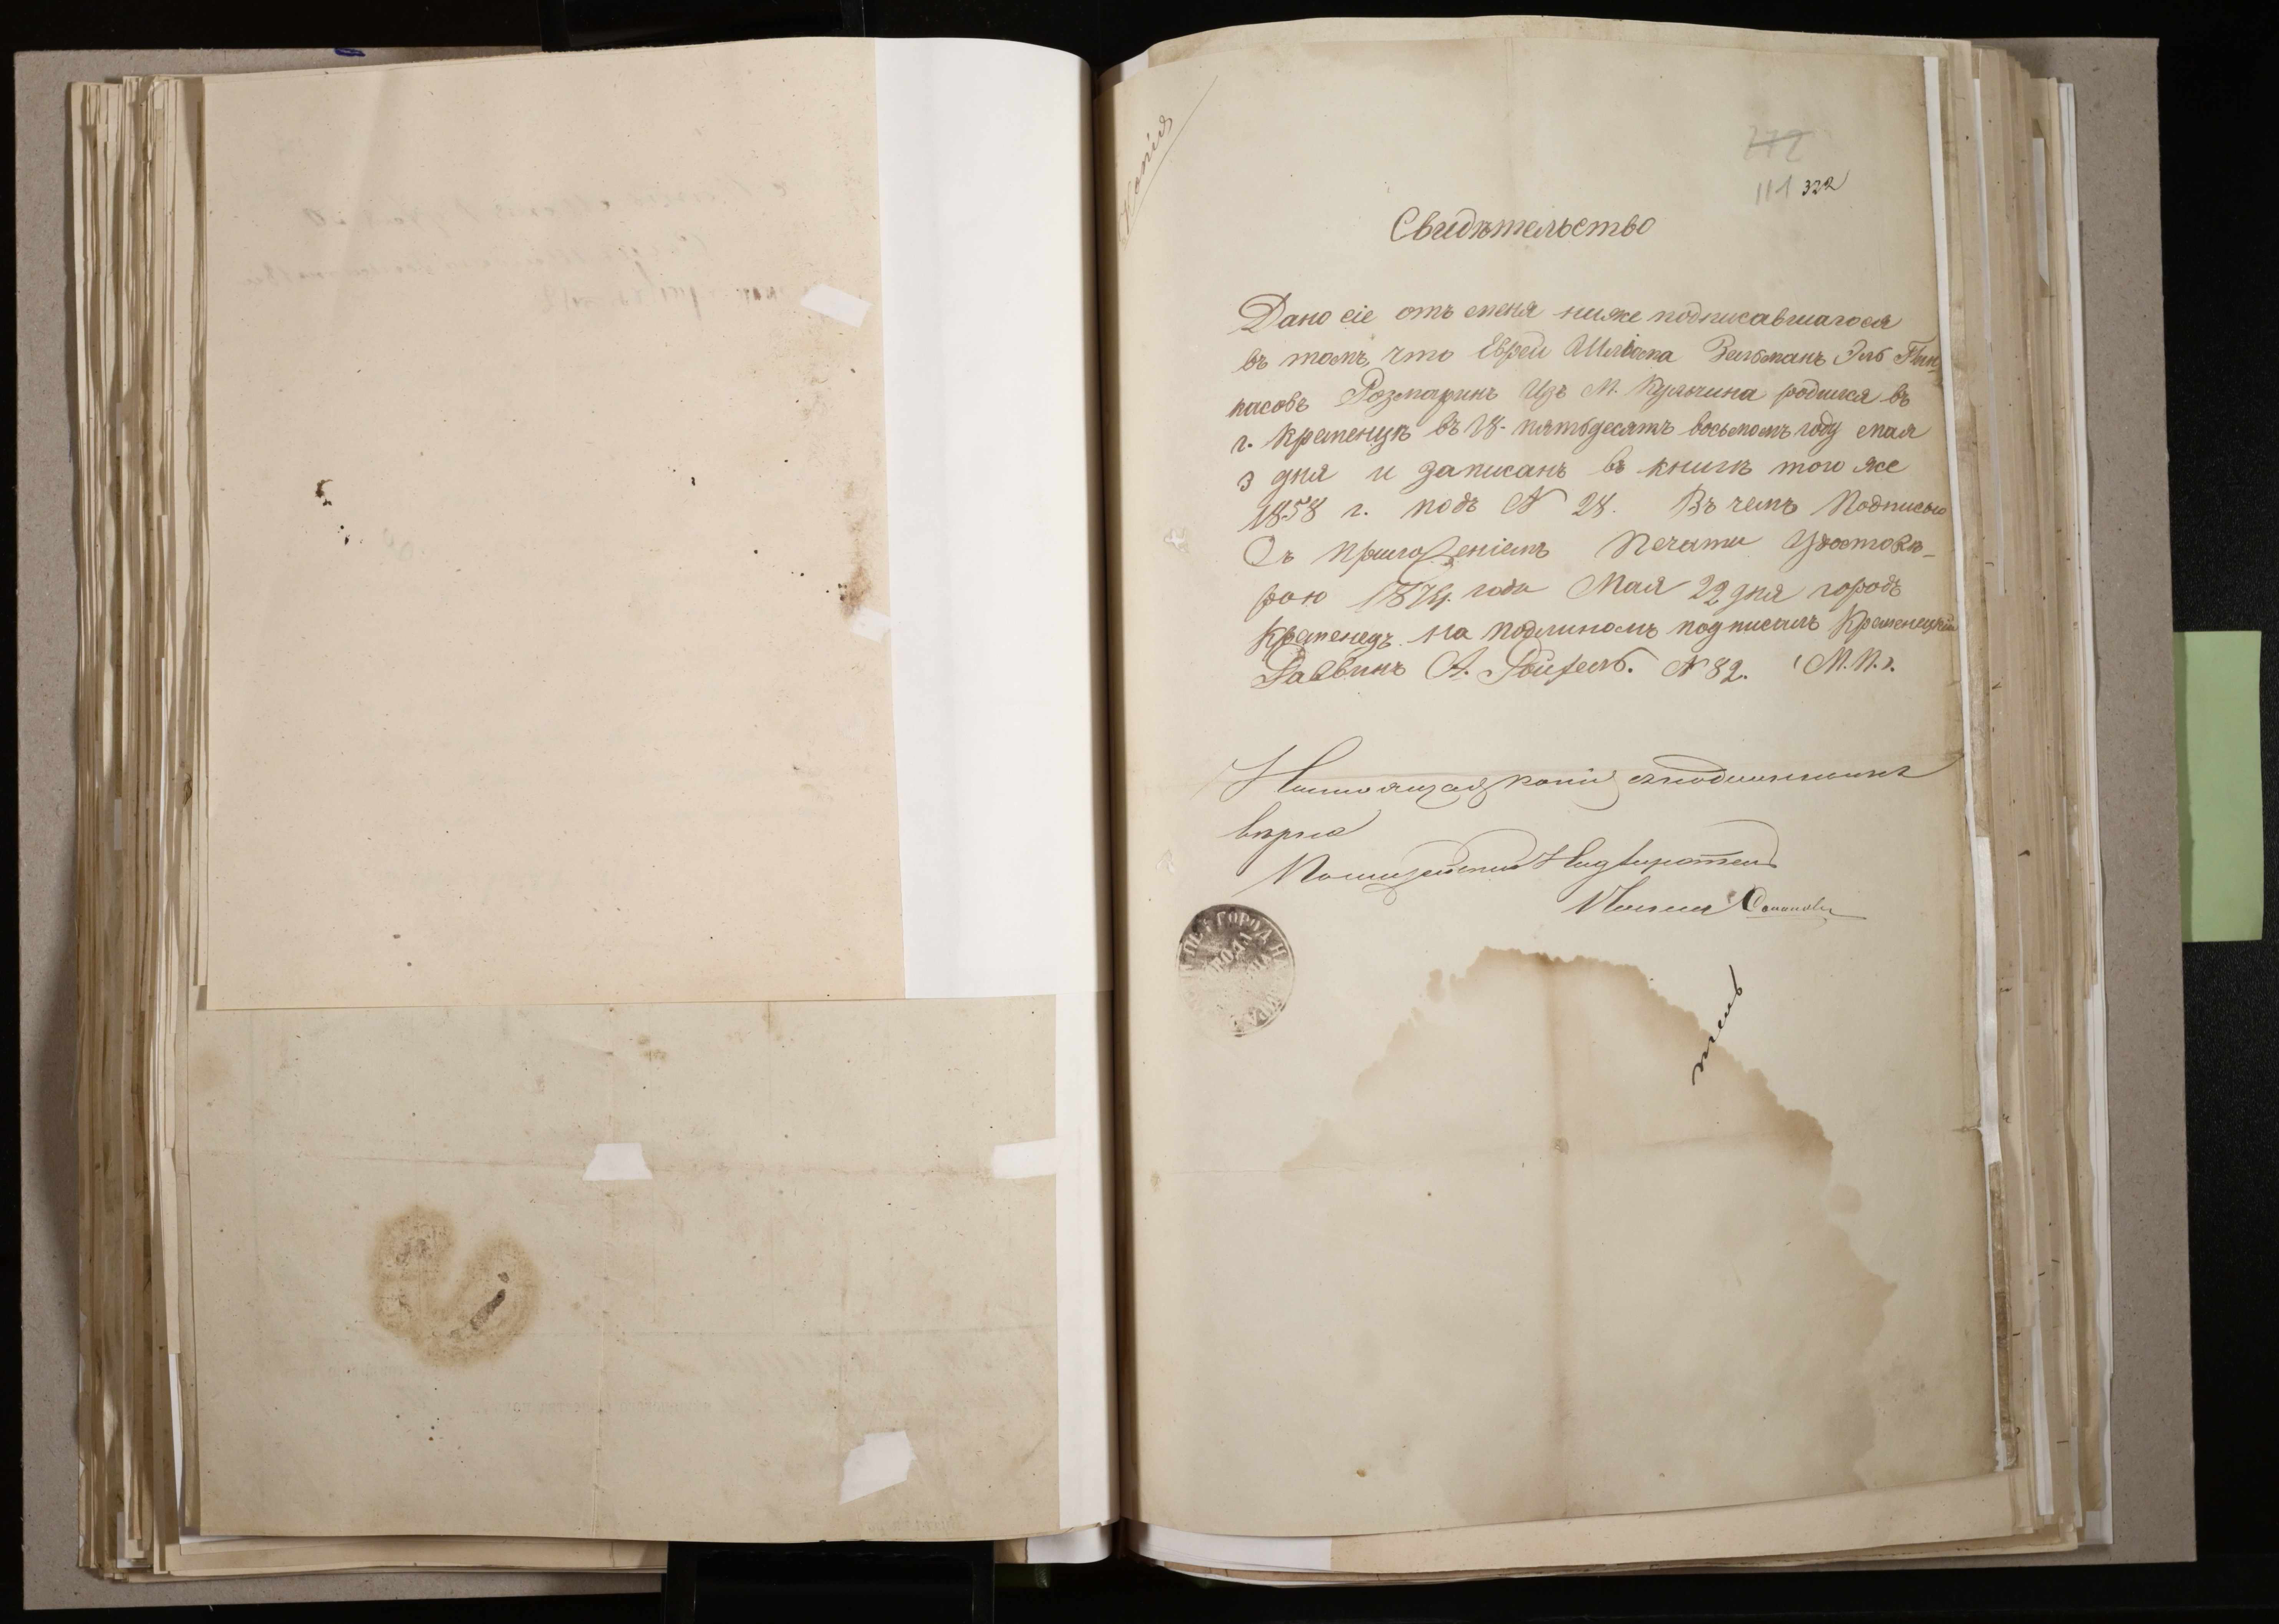 Копія
272
111 322
Свидѣтельство
Дано сіе отъ меня ниже подписавшагося
въ томъ, что Еврей Шліома Зельманъ Эль Пин-
касовъ Розмаринъ изъ М. Кульчина родился въ
г. Кременцѣ въ 18- пятьдесятъ восьмомъ году мая
3 дня и записанъ въ книгѣ того же
1858 г. подъ N 28. Въ чемъ Подписью
Съ приложеніемъ Печати Удостовѣ-
ряю 1874. года Мая 22 дня городъ
Кременецъ. На подлиномъ подписалъ Кременецкій
Раввинъ А. Ройхель. N 82. (М. П.).
Настоящая копія съ подлиннымъ
вѣрна
Полицейскій Надзиратель
ГОРОДА